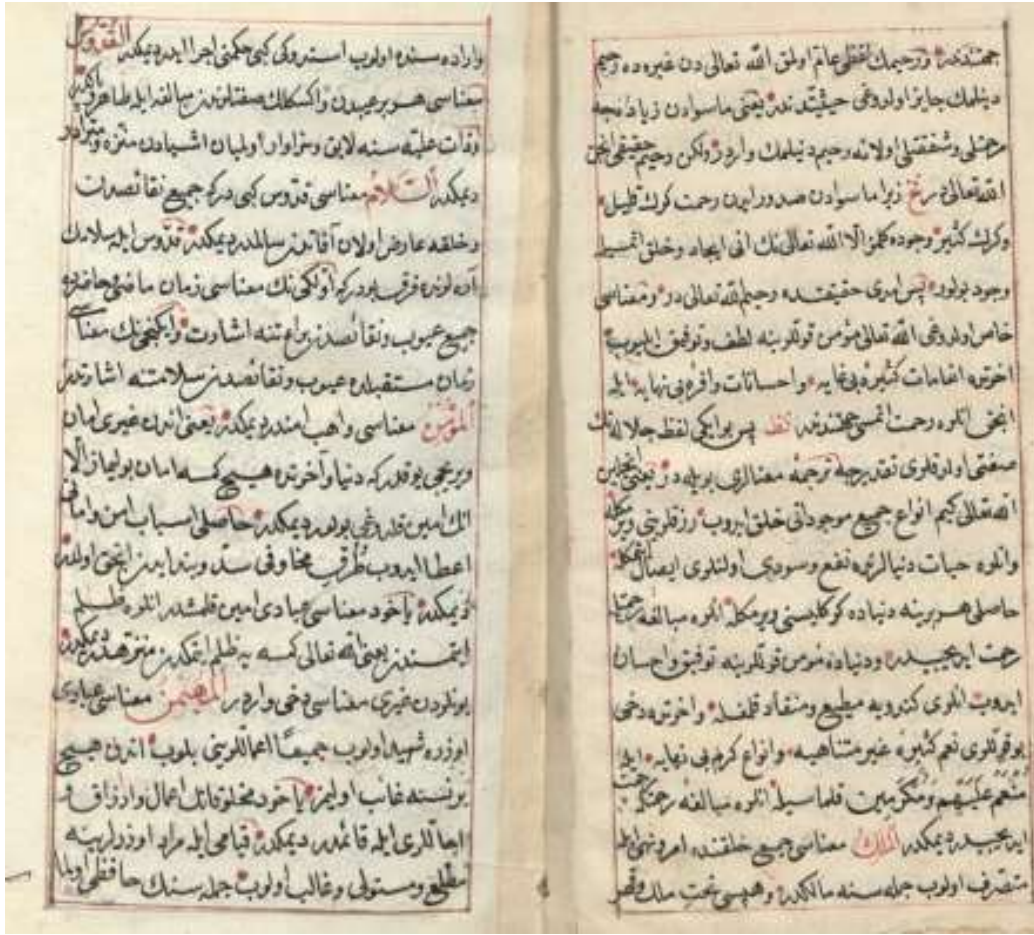 جهتندندر ورحیمك لفظی عام اولمق الله تعالی دن غیره ده رحیم
دینلمك جایز اولدوغی حیثیتدندر یعنی ماسوادن زیاده نجه
مرحمتلی وشفقتلی اولانه رحیم دنیلمك واردر ولكن رحیم حقیقی انجق
الله تعالی در زیرا ماسوادن صدور ایدن رحمت كرك قلیل
وكرك كثیر وجوده كلمز الا الله تعالی نك انی ایجاد وخلق اتمسیله
وجود بولور پس امدی حقیقتده رحیم الله تعالی در ومعناسی
خاص اولدوغی الله تعالی مؤمن قوللرینه لطف وتوفیق ایدوب
اخرتده انعامات كثیره بی غایه واحسانات وافره بی نهایه ایله
انجق انلره رحمت اتمسی جهتندندر پس بو ایكی لفظ جلاله نك
صفتی اولدقلری تقدیرجه ترجمه معنالری بویله در یعنی
الله تعالی كیم انواع جمیع موجوداتی خلق ایدوب رزقلرینی ویرمكله
وانلره حیات دنیالرنده نفع وسودی اولنلری ایصال اتمكله
حاصلی هر برینه دنیاده كركلیسنی ویرمكله انلره مبالغه رحمتله
رحمت ایدیجیدر ودنیاده مومن قوللرینه توفیق واحسان
ایدوب انلری كندویه مطیع ومنقاد قلمغله واخرتده دخی
بو قوللری نعم كثیره غیر متناهیه وانواع كرم بی نهایه ایله
منعم علیهم ومكرمین قلماسیله انلره مبالغه رحمتله رحمت
ایدیجیدر دیمكدر الملك معناسی جمیع خلقنده امر ونهی ایله
متصرف اولوب جمله سنه مالكدر وهپسی تحت ملك وقهر
واراده سنده اولوب استدوكی كبی حكمنی اجرا ایدر دیمكدر القدوس
معناسی هر بر عیبدن واكسكلك صفتلرندن مبالغه ایله طاهر وپاكدر
وذات علیه سنه لایق وسزاوار اولمیان اشیادن منزه ومبرادر
دیمكدر السلام معناسی قدوس كبی در كه جمیع نقائصدن
وخلقه عارض اولان آفاتدن سالمدر دیمكدر قدوس ایله سلامك
آره لرنده فرق بودر كه اولكی نك معناسی زمان ماضی وحاضرده
جمیع عیوب ونقائصدن براءتنه اشارت وایكنجی نك معناسی
زمان مستقبلده عیوب ونقائصدن سلامتنه اشارتدر
المؤمن معناسی واهب امندر دیمكدر یعنی اندن غیری امان
ویریجی یوقدر كه دنیا وآخرتده هیچ كسه امان بولیماز الا
انك امین قلدوغی بولور دیمكدر حاصلی اسباب امن وامانی
اعطا ایدوب طرق مخاوفی سد وبند ایدن انجق اولدر
دیمكدر یاخود معناسی عبادی امین قلمشدر انلره ظلم
ایتمسندن یعنی الله تعالی كسه یه ظلم ایتمكدن منزهدر دیمكدر
بونلردن غیری معناسی دخی واردر المهیمن معناسی عبادی
اوزره شهید اولوب جمیعا اعماللرینی بلوب اندن هیچ
بر نسنه غائب اولیمز یاخود مخلوقاتك اعمال وارزاق و
اجاللری ایله قائمدر دیمكدر قیامی ایله مراد اوزرلرینه
مطلع ومستولی وغالب اولوب جمله سنك حافظی اولا